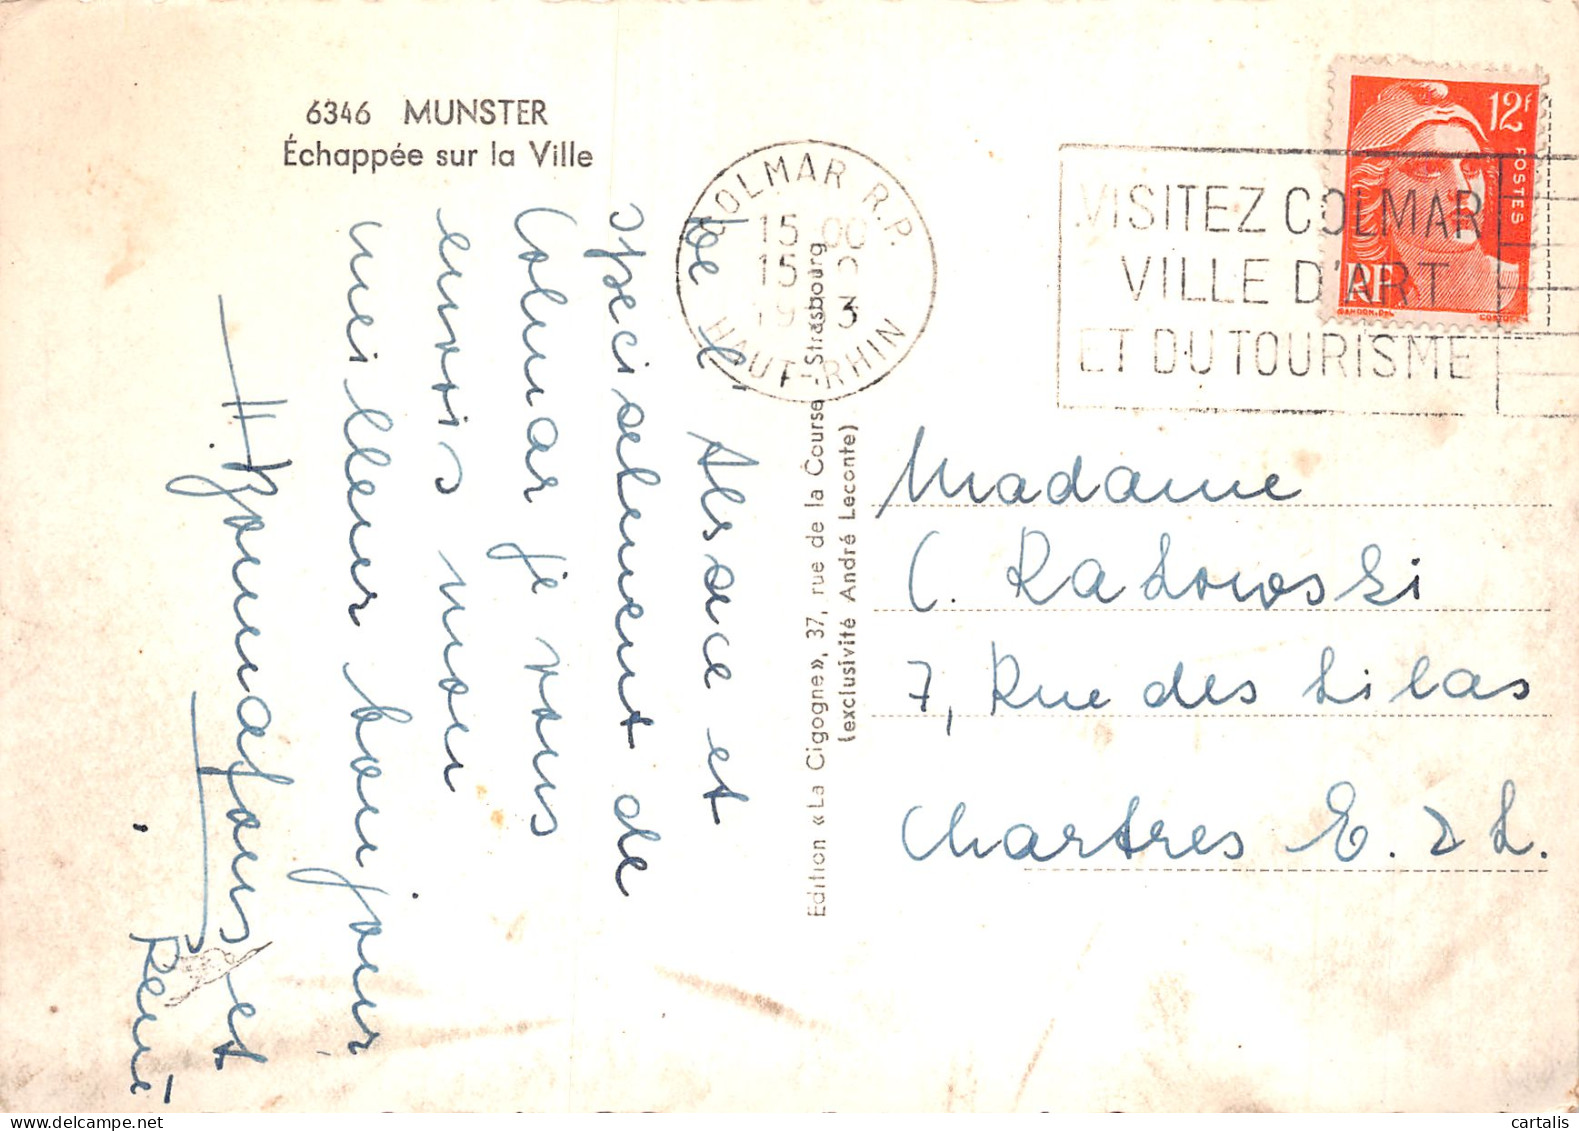 6346 MUNSTER
Échappée sur la Ville
De l'Alsace et
specialement de
Colmar je vous
envois mon
meilleur bonjour
et
René
Edition «La Cigogne», 37, rue de la Course - Strasbourg
(exclusivité André Leconte)
COLMAR R.P.
15 00
15
HAUT-RHIN
VISITEZ COLMAR
VILLE D'ART
ET DU TOURISME
12F
POSTES
RF
GANDON DEL
Madame
C.
7, Rue des Lilas
Chartres E. & L.
cartalis
delcampe.net